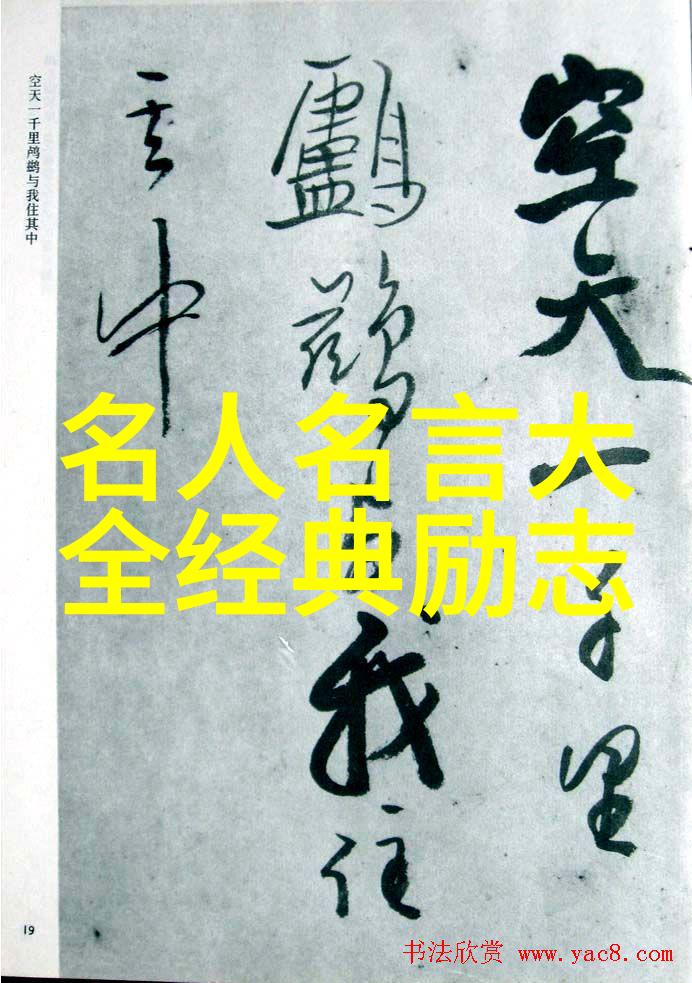 空天一千里
鸕鷀与我住
其中
空天一千里鸬鹚与我住其中
名人名言大
全经典励志
19
书法欣赏 www.yac8.com